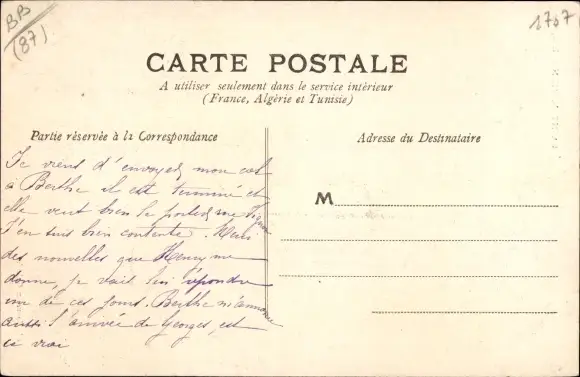 BB
(87)
1707
CARTE POSTALE
A utiliser seulement dans le service intérieur
(France, Algérie et Tunisie)
Partie réservée à la Correspondance
Adresse du Destinataire
M
Je viens d'envoyer mon col
à Berthe il est terminé et
elle veut bien le porter me
J'en suis bien contente. Merci
des nouvelles que Henry me
donne, je vait lui répondre
un de ces jours. Berthe m'annonce
aussi l'arrivée de Georges, est
ce vrai